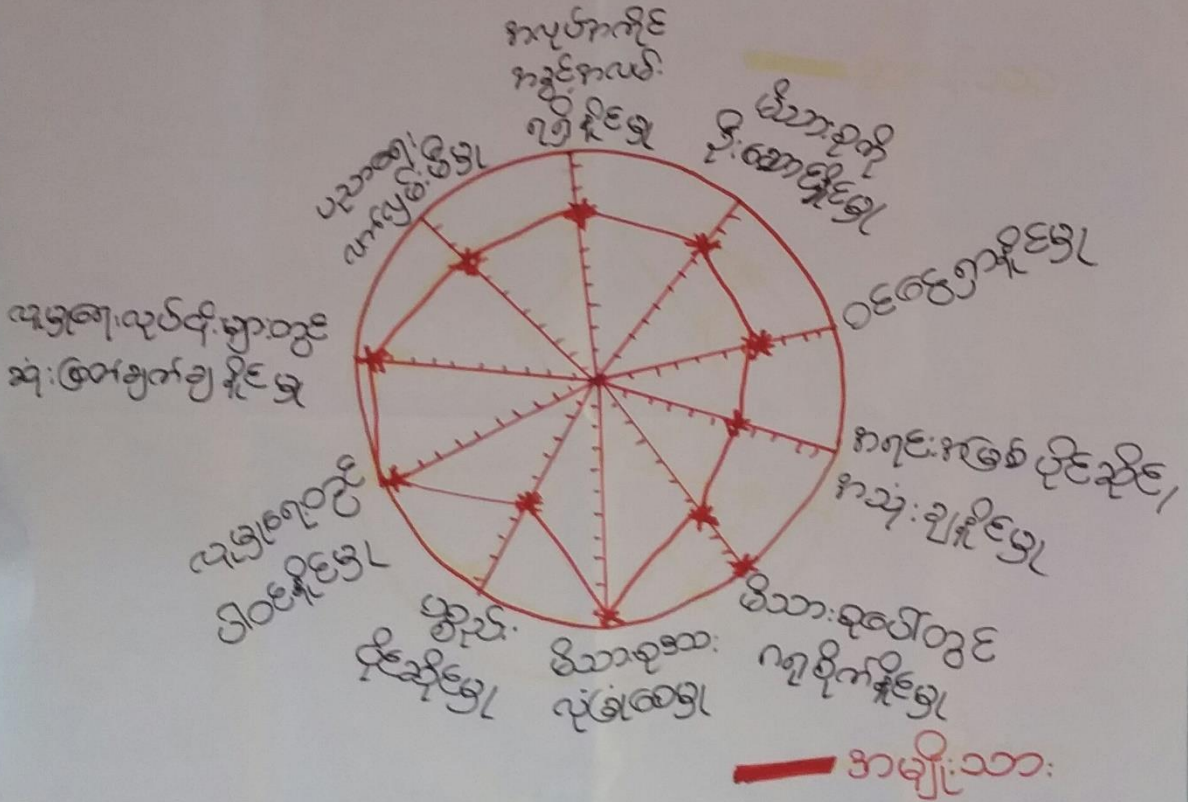 အလုပ်အကိုင်
အခွင့်အလမ်း
ရရှိနိုင်မှု
မိသားစုကို
ဦးဆောင်နိုင်မှု
ဝင်ငွေရှာနိုင်မှု
အရင်းအမြစ် ပိုင်ဆိုင်၊
အသုံးချနိုင်မှု
မိသားစုပေါ်တွင်
ဂရုစိုက်နိုင်မှု
မိသားစုအား
လုံခြုံစေမှု
ပစ္စည်း
ပိုင်ဆိုင်မှု
လူမှုရေးတွင်
ပါဝင်နိုင်မှု
လူမှုရေးလုပ်ငန်းများတွင်
ဆုံးဖြတ်ချက်ချနိုင်မှု
ပညာရေး မြှင့်မှု
အမျိုးသား